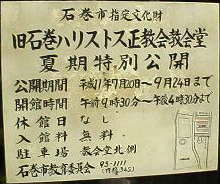 石巻市指定文化財
旧石巻ハリストス正教会教会堂
夏期特別公開
公開期間 平成11年7月20日〜9月24日まで
開館時間 午前9時30分〜午後4時30分まで
休館日 なし
入館料 無料
駐車場 教会堂北側
石巻市教育委員会 95-1111